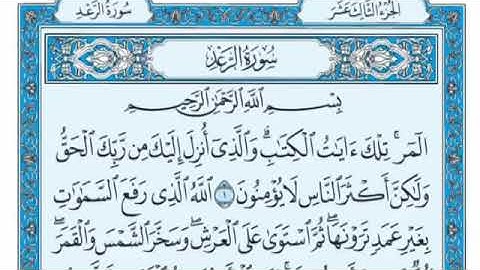 الجزء الثالث عشر
سورة الرعد
سورة الرعد
بِسْمِ اللَّهِ الرَّحْمَٰنِ الرَّحِيمِ
الٓمٓر ۚ تِلْكَ ءَايَٰتُ الْكِتَٰبِ ۗ وَالَّذِىٓ أُنزِلَ إِلَيْكَ مِن رَّبِّكَ الْحَقُّ
وَلَٰكِنَّ أَكْثَرَ النَّاسِ لَا يُؤْمِنُونَ ١ اللَّهُ الَّذِى رَفَعَ السَّمَٰوَٰتِ
بِغَيْرِ عَمَدٍ تَرَوْنَهَا ۖ ثُمَّ اسْتَوَىٰ عَلَى الْعَرْشِ ۖ وَسَخَّرَ الشَّمْسَ وَالْقَمَرَ ۖ